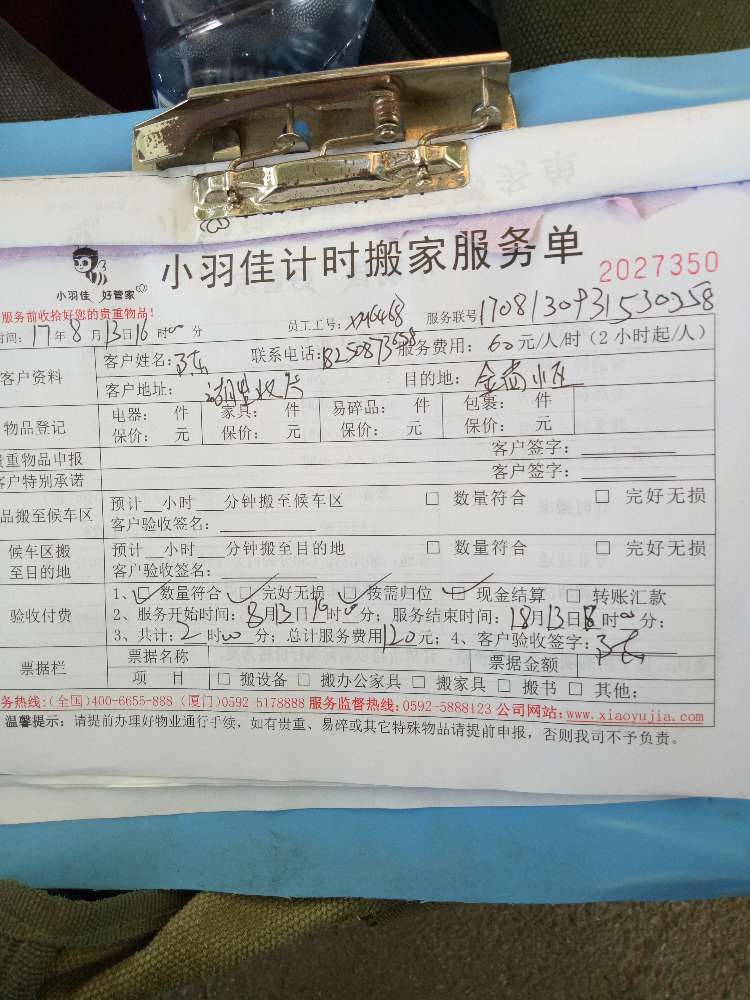 小羽佳计时搬家服务单
2027350
小羽佳 好管家
服务前收拾好您的贵重物品!
员工工号: 服务联号1708130931530358
时间: 17年8月13日16时00分
客户资料 客户姓名: 联系电话: 服务费用: 60元/人/时(2小时起/人)
客户地址: 目的地: 金尚小区
物品登记 电器: 件 家具: 件 易碎品: 件 包裹: 件
保价: 元 保价: 元 保价: 元 保价: 元
贵重物品申报 客户签字:
客户特别承诺 客户签字:
品搬至候车区 预计 小时 分钟搬至候车区 □ 数量符合 □ 完好无损
客户验收签名:
候车区搬至目的地 预计 小时 分钟搬至目的地 □ 数量符合 □ 完好无损
客户验收签名:
验收付费 1、☑ 数量符合 ☑ 完好无损 ☑ 按需归位 ☑ 现金结算 □ 转账汇款
2、服务开始时间: 8月13日16时00分; 服务结束时间: 18月13日18时00分;
3、共计: 2时00分; 总计服务费用120元; 4、客户验收签字:
票据栏 票据名称 票据金额
项 目 □ 搬设备 □ 搬办公家具 □ 搬家具 □ 搬书 □ 其他:
务热线:(全国)400-6655-888 (厦门)0592-5178888 服务监督热线:0592-5888123 公司网站:www.xiaoyujia.com
温馨提示: 请提前办理好物业通行手续, 如有贵重、易碎或其它特殊物品请提前申报, 否则我司不予负责。